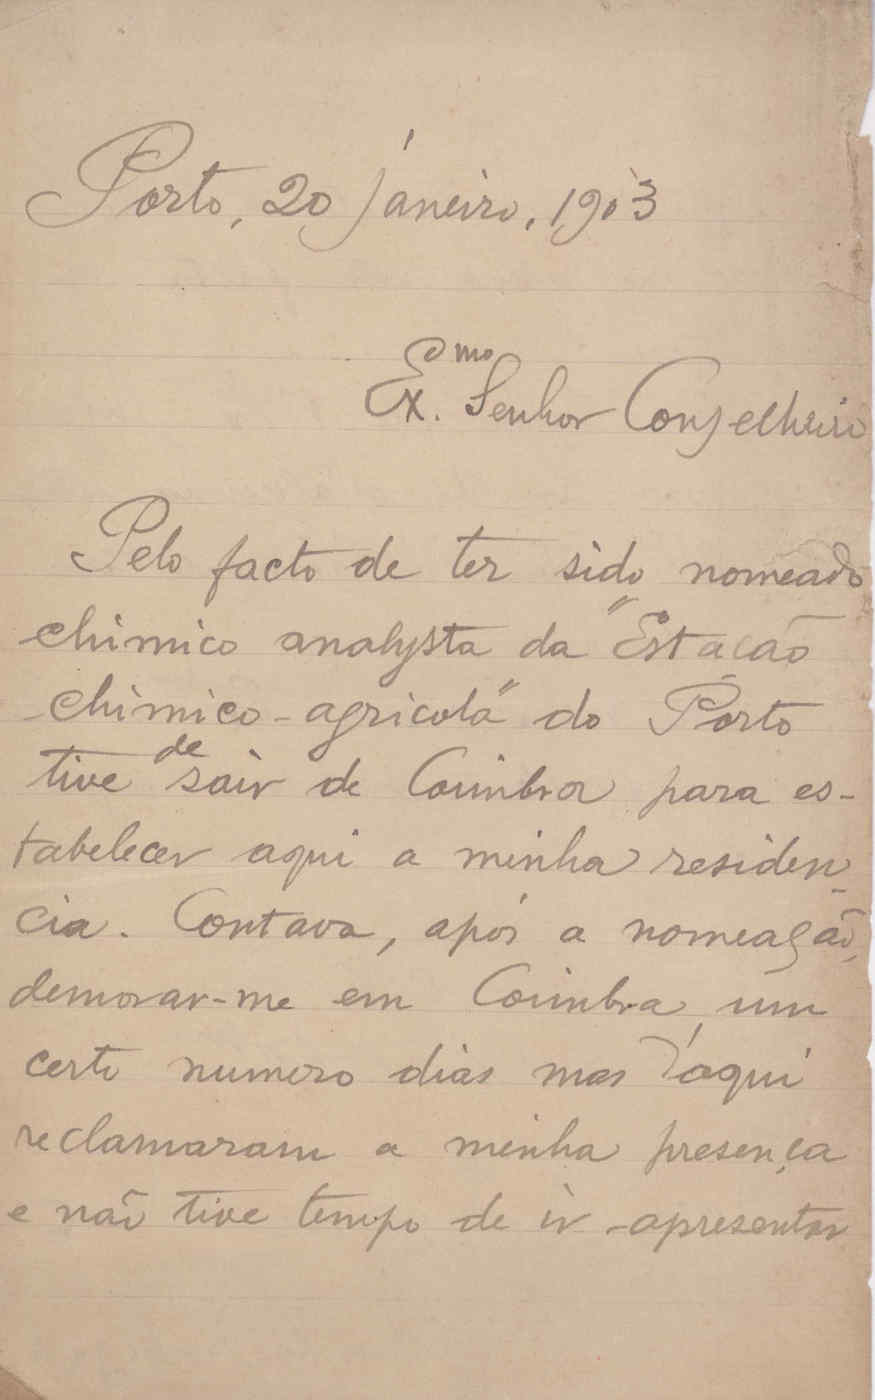 Porto, 20 janeiro, 1903
Ex.mo Senhor Conselheiro
Pelo facto de ter sido nomeado
chimico analysta da "Estação
chimico-agricola" do Porto
tive de sair de Coimbra para es-
tabelecer aqui a minha residen-
cia. Contava, após a nomeação,
demorar-me em Coimbra um
certo numero dias mas d'aqui
reclamaram a minha presença
e não tive tempo de ir apresentar